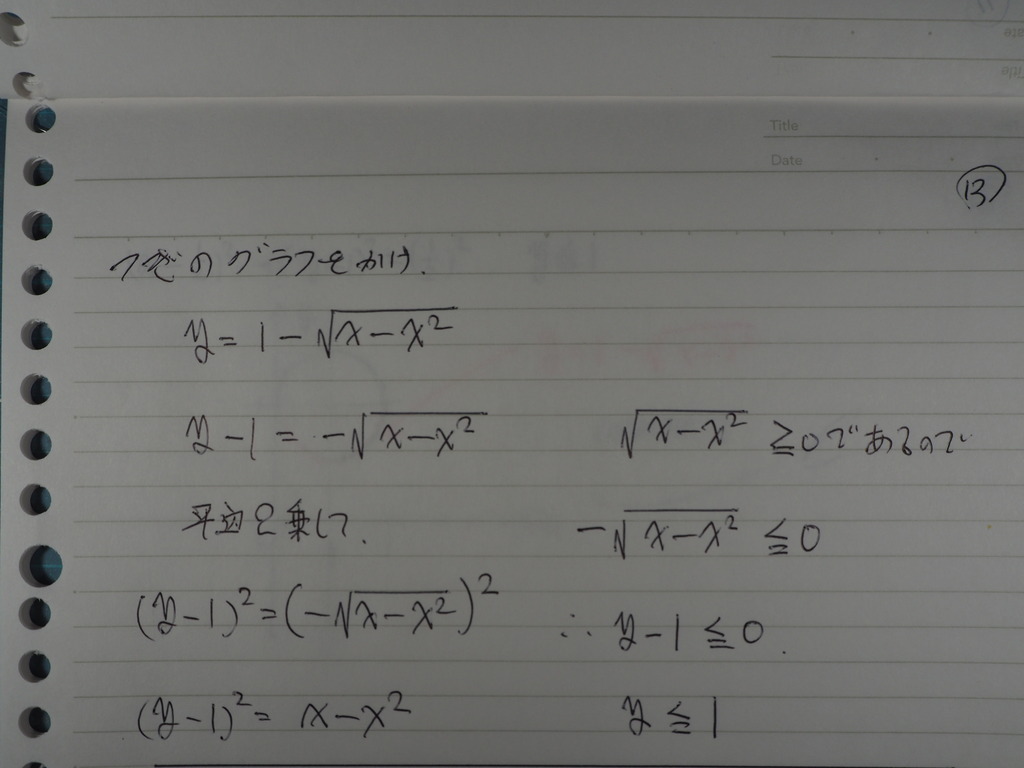 Title
Date
13
つぎのグラフをかけ.
y = 1 - √(x - x²)
y - 1 = - √(x - x²) √(x - x²) ≧ 0 であるので
乗して. - √(x - x²) ≦ 0
(y - 1)² = (- √(x - x²))² ∴ y - 1 ≦ 0.
(y - 1)² = x - x² y ≦ 1